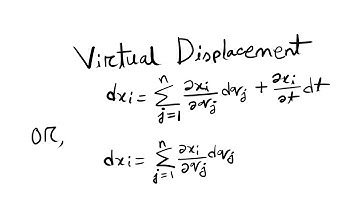 Virtual Displacement
dxi = \sum_{j=1}^{n} \frac{∂xi}{∂qj} dqj + \frac{∂xi}{∂t} dt
OR,
dxi = \sum_{j=1}^{n} \frac{∂xi}{∂qj} dqj